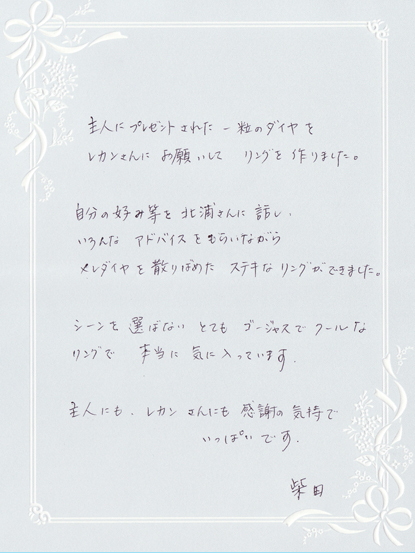 主人にプレゼントされた一粒のダイヤを
レカンさんにお願いして リングを作りました。
自分の好み等を北浦さんに話し、
いろんなアドバイスをもらいながら
メレダイヤを散りばめた ステキなリングができました。
シーンを選ばない とても ゴージャスで クールな
リングで 本当に気に入っています。
主人にも、レカンさんにも 感謝の気持で
いっぱいです。
柴田